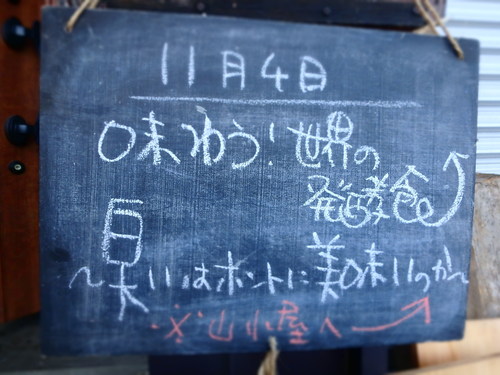 11月4日
味わう!世界の
発酵食
～臭いはホントに美味いのか～
※山小屋へ→